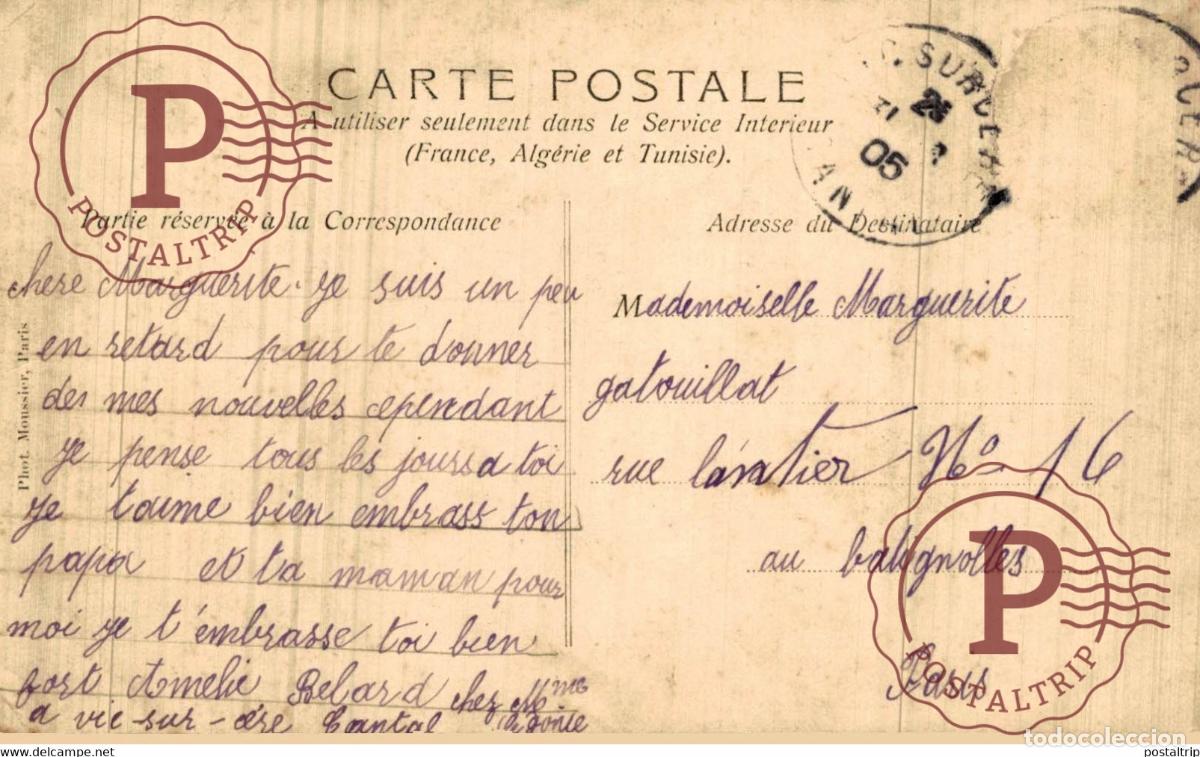 CARTE POSTALE
A utiliser seulement dans le Service Interieur
(France, Algérie et Tunisie).
SUR CÈRE
23
05
Partie réservée à la Correspondance
Adresse du Destinataire
chere Marguerite. je suis un peu
en retard pour te donner
des mes nouvelles cependant
je pense tous les jours a toi
je t'aime bien embrass ton
papa et ta maman pour
moi je t'émbrasse toi bien
fort Amelie Belard chez Mme
a vic-sur-cère Cantal
Mademoiselle Marguerite
gatouillat
rue No 16
au batignolles
Paris
Phot. Moussier, Paris
P
POSTALTRIP
P
POSTALTRIP
todocoleccion
https://www.todocoleccion.net/
postaltrip